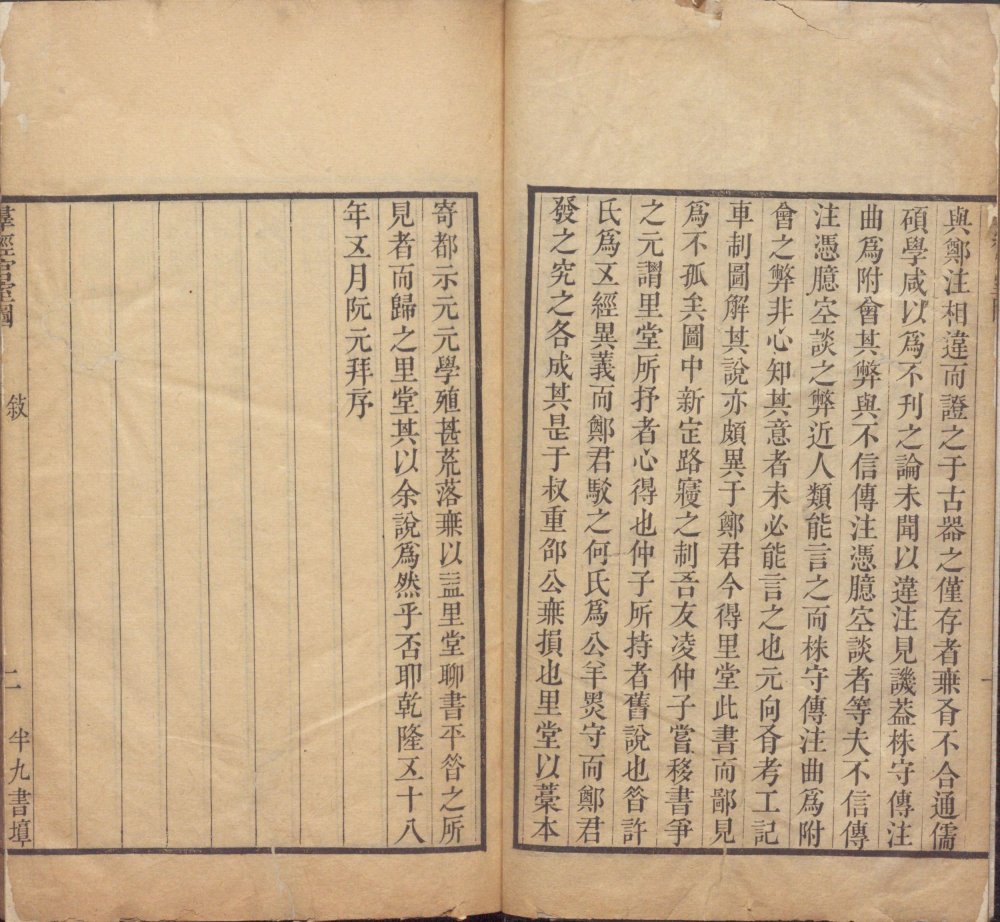 與鄭注相違而證之于古器之僅存者無不合通儒
碩學咸以爲不刋之論未聞以違注見譏葢株守傳注
曲爲附會其弊與不信傳注憑臆空談者等夫不信傳
注憑臆空談之弊近人類能言之而株守傳注曲爲附
會之弊非心知其意者未必能言之也元向有考工記
車制圖解其說亦頗異于鄭君今得里堂此書而鄙見
爲不孤矣圖中新定路寢之制吾友凌仲子嘗移書爭
之元謂里堂所抒者心得也仲子所持者舊說也昝許
氏爲五經異義而鄭君駁之何氏爲公羊墨守而鄭君
發之究之各成其是于叔重邵公無損也里堂以藁本
寄都示元元學殖甚荒落無以益里堂聊書平昝之所
見者而歸之里堂其以余說爲然乎否耶乾隆五十八
年五月阮元拜序
羣經宮室圖
敘
二
半九書塾